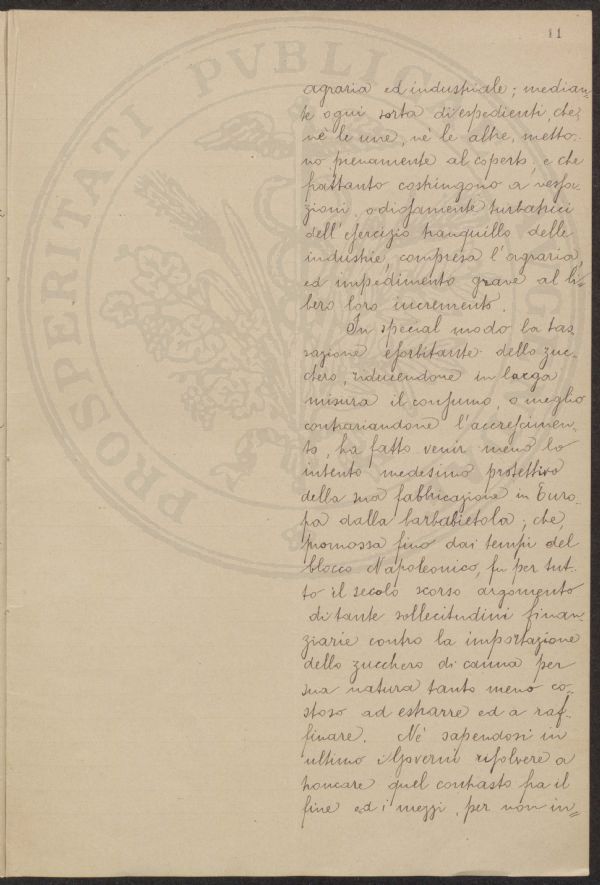 11
agraria ed industriale; median=
te ogni sorta di espedienti, che,
nè le une, nè le altre, metto-
no pienamente al coperto, e che
frattanto costringono a vessa-
zioni, odiosamente turbatrici
dell'esercizio tranquillo delle
industrie, compresa l'agraria,
ed impedimento grave al li=
bero loro incremento.
In special modo la tas
sazione esorbitante dello zuc-
chero, riducendone in larga
misura il consumo, o meglio
contrariandone l'accrescimen-
to, ha fatto venir meno lo
intento medesimo protettivo
della sua fabbricazione in Euro-
pa dalla barbabietola; che,
promossa fino dai tempi del
blocco Napoleonico, fu per tut-
to il secolo scorso argomento
di tante sollecitudini finan-
ziarie contro la importazione
dello zucchero di canna per
sua natura tanto meno co-
stoso ad estrarre ed a raf-
finare. Nè sapendosi in
ultimo i Governi risolvere a
troncare quel contrasto fra il
fine ed i mezzi, per non in=
PROSPERITATI PVBLICAE AVG